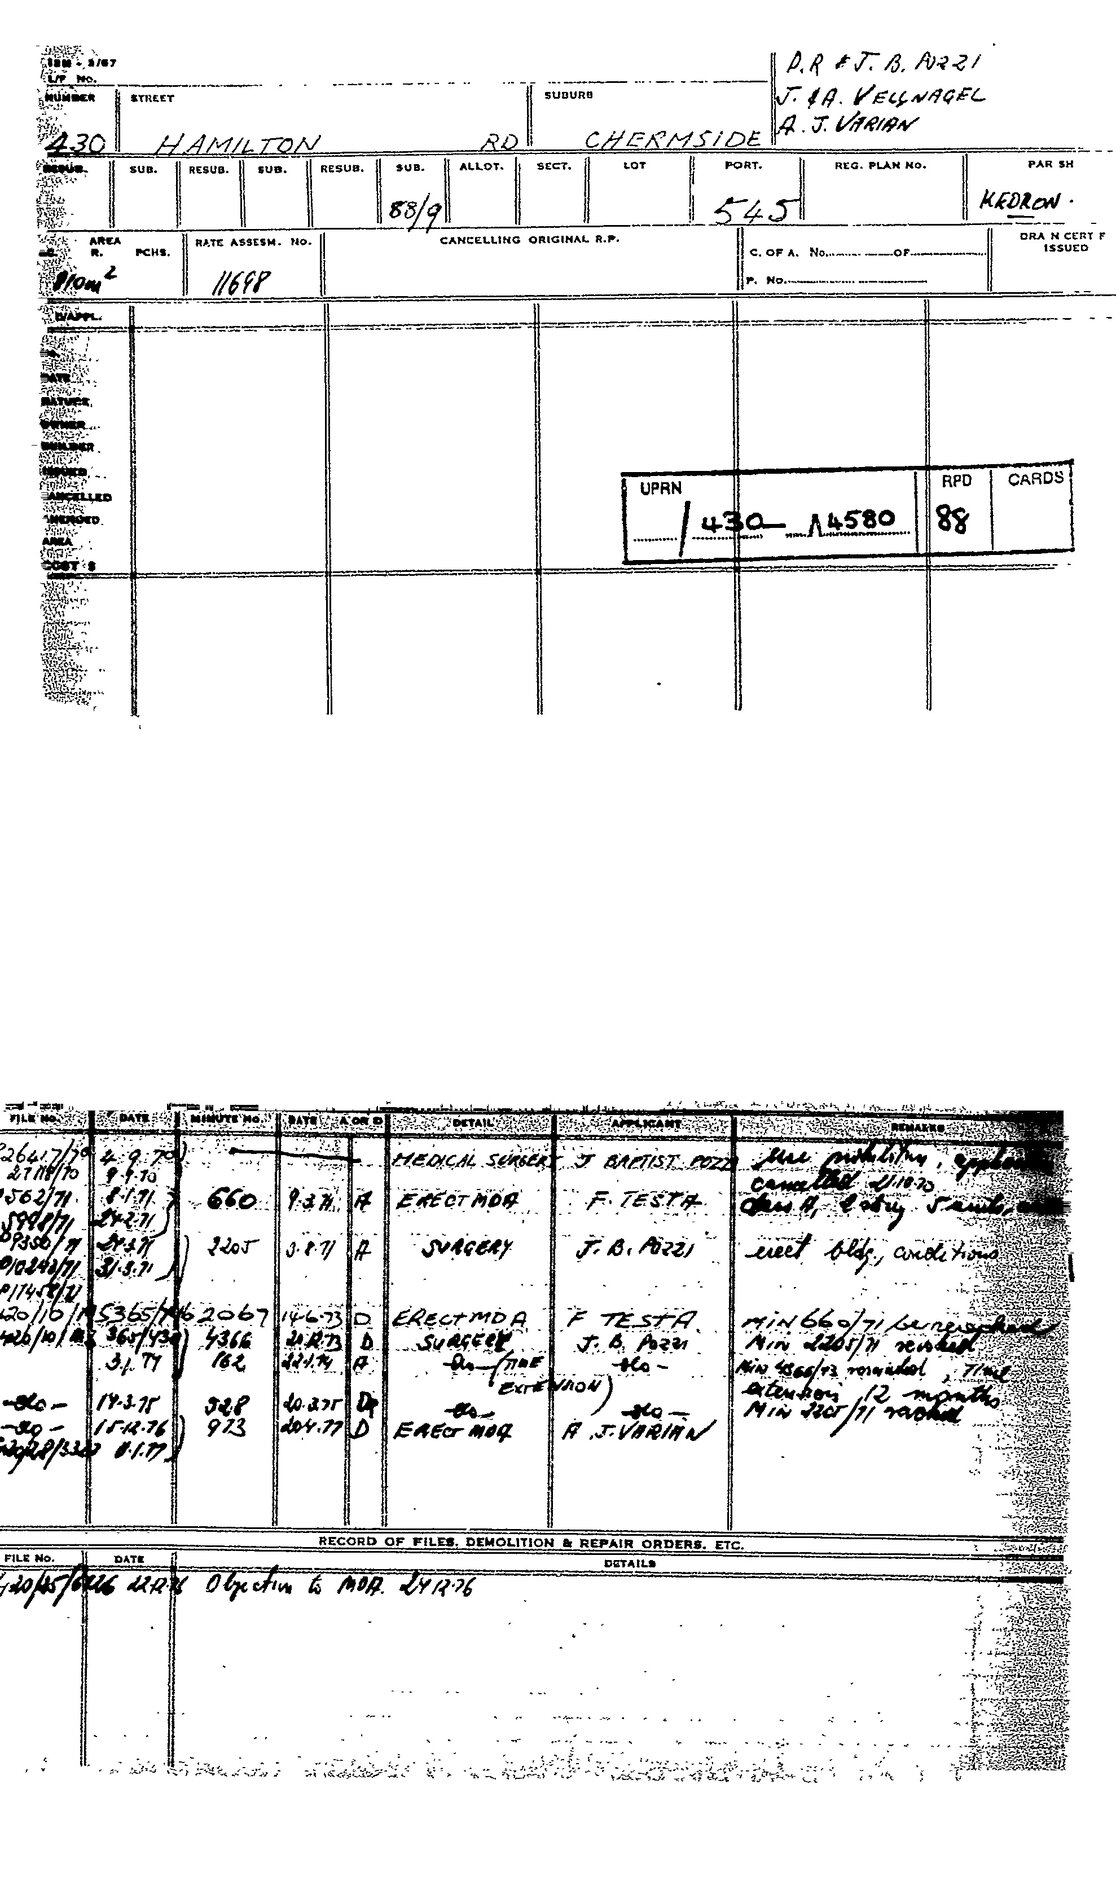 L/P No.
D.R & J. B. POZZI
J. & A. VELLNAGEL
A. J. VARIAN
NUMBER STREET SUBURB
430 HAMILTON RD CHERMSIDE
RESUB. SUB. RESUB. SUB. RESUB. SUB. ALLOT. SECT. LOT PORT. REG. PLAN No. PAR SH
88/9 545 KEDRON.
AREA RATE ASSESM. No. CANCELLING ORIGINAL R.P. DRA N CERT F
R. PCHS. C. OF A. No. OF ISSUED
810m² 11698 P. No.
D/APPL.
No.
DATE
NATURE
OWNER
BUILDER
ISSUED
CANCELLED
AMENDED
AREA
COST $
UPRN RPD CARDS
/ 430 — 14580 88
FILE No. DATE MINUTE No. DATE A OR D DETAIL APPLICANT REMARKS
4.9.70 MEDICAL SURGERY J BAPTIST POZZI
27118/70 9.9.70 cancelled 21.10.70
1562/71 8.1.71 660 9.3.71 A ERECT MDA F. TESTA 5 units,
5998/71 24.2.71
9350/71 24.3.71 2205 3.8.71 A SURGERY J. B. POZZI erect bldg, conditions
P10242/71 31.3.71
P11458/71
2067 14.6.73 D ERECT MDA F TESTA MIN 660/71 be rescinded
4366 20.12.73 D SURGERY J. B. POZZI MIN 2205/71 revoked
3.1.74 162 22.1.74 A —do— (TIME —do— MIN 4366/73 rescinded, TIME
EXTENSION) extension, 12 months
—do— 14.3.75 928 20.3.75 —do— —do— MIN 2205/71 revoked
—do— 15.12.76 973 20.4.77 D ERECT MDA A .J. VARIAN
RECORD OF FILES, DEMOLITION & REPAIR ORDERS, ETC.
FILE No. DATE DETAILS
22.12.76 Objection to MDA. 24.12.76